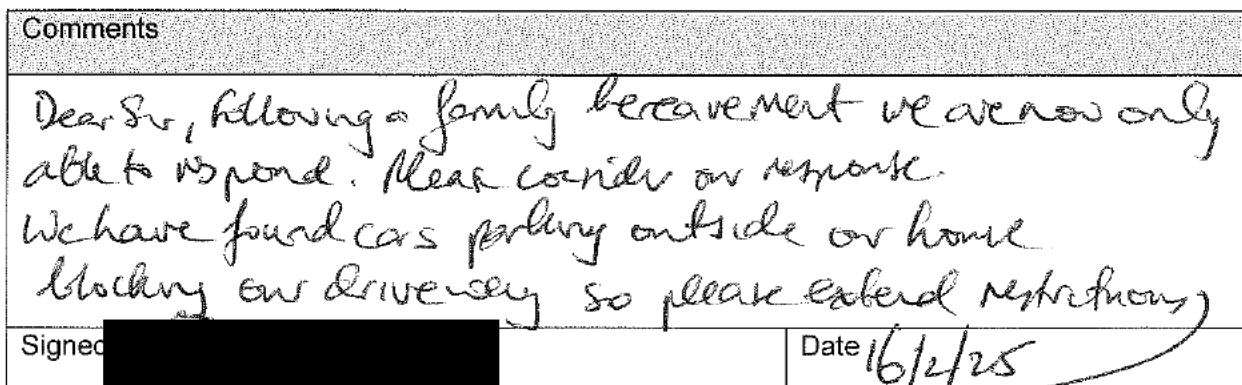 Comments
Dear Sir, following a family bereavement we are now only
able to respond. Please consider our response.
We have found cars parking outside our house
blocking our driveway so please extend restrictions
Signed
Date 16/2/25